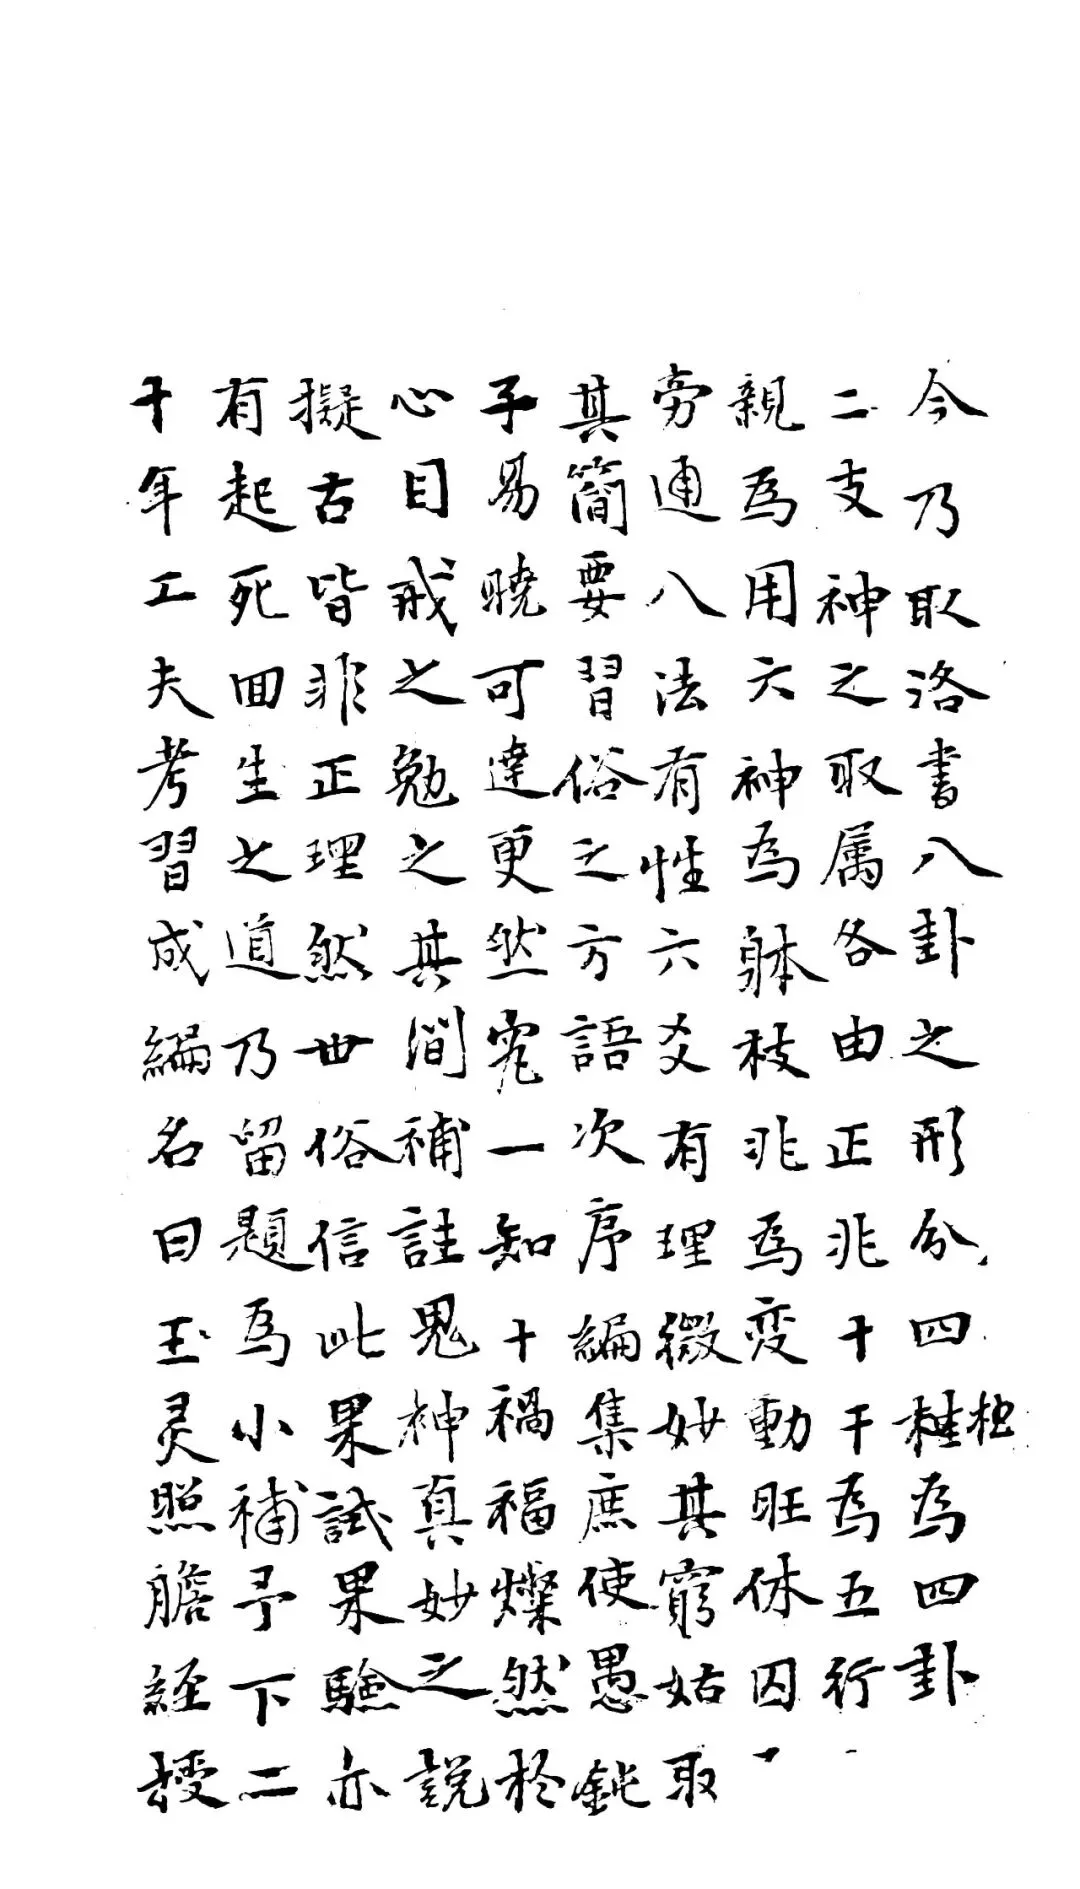 今乃取洛書八卦之形分四種為四卦
二支神之取属各由正兆十干為五行
親為用六神為躰枝兆為変動旺休囚
旁通八法有性六爻有理微妙其窮姑取
其簡要習俗之方語次序編集庶使愚鈍
子易曉可達更然究一知十禍福燦然於
心目戒之勉之其間補註鬼神真妙之説
擬古皆非正理然世俗信此果試果驗亦
有起死回生之道乃留題為小補予下二
十年工夫考習成編名曰玉灵照膽経授